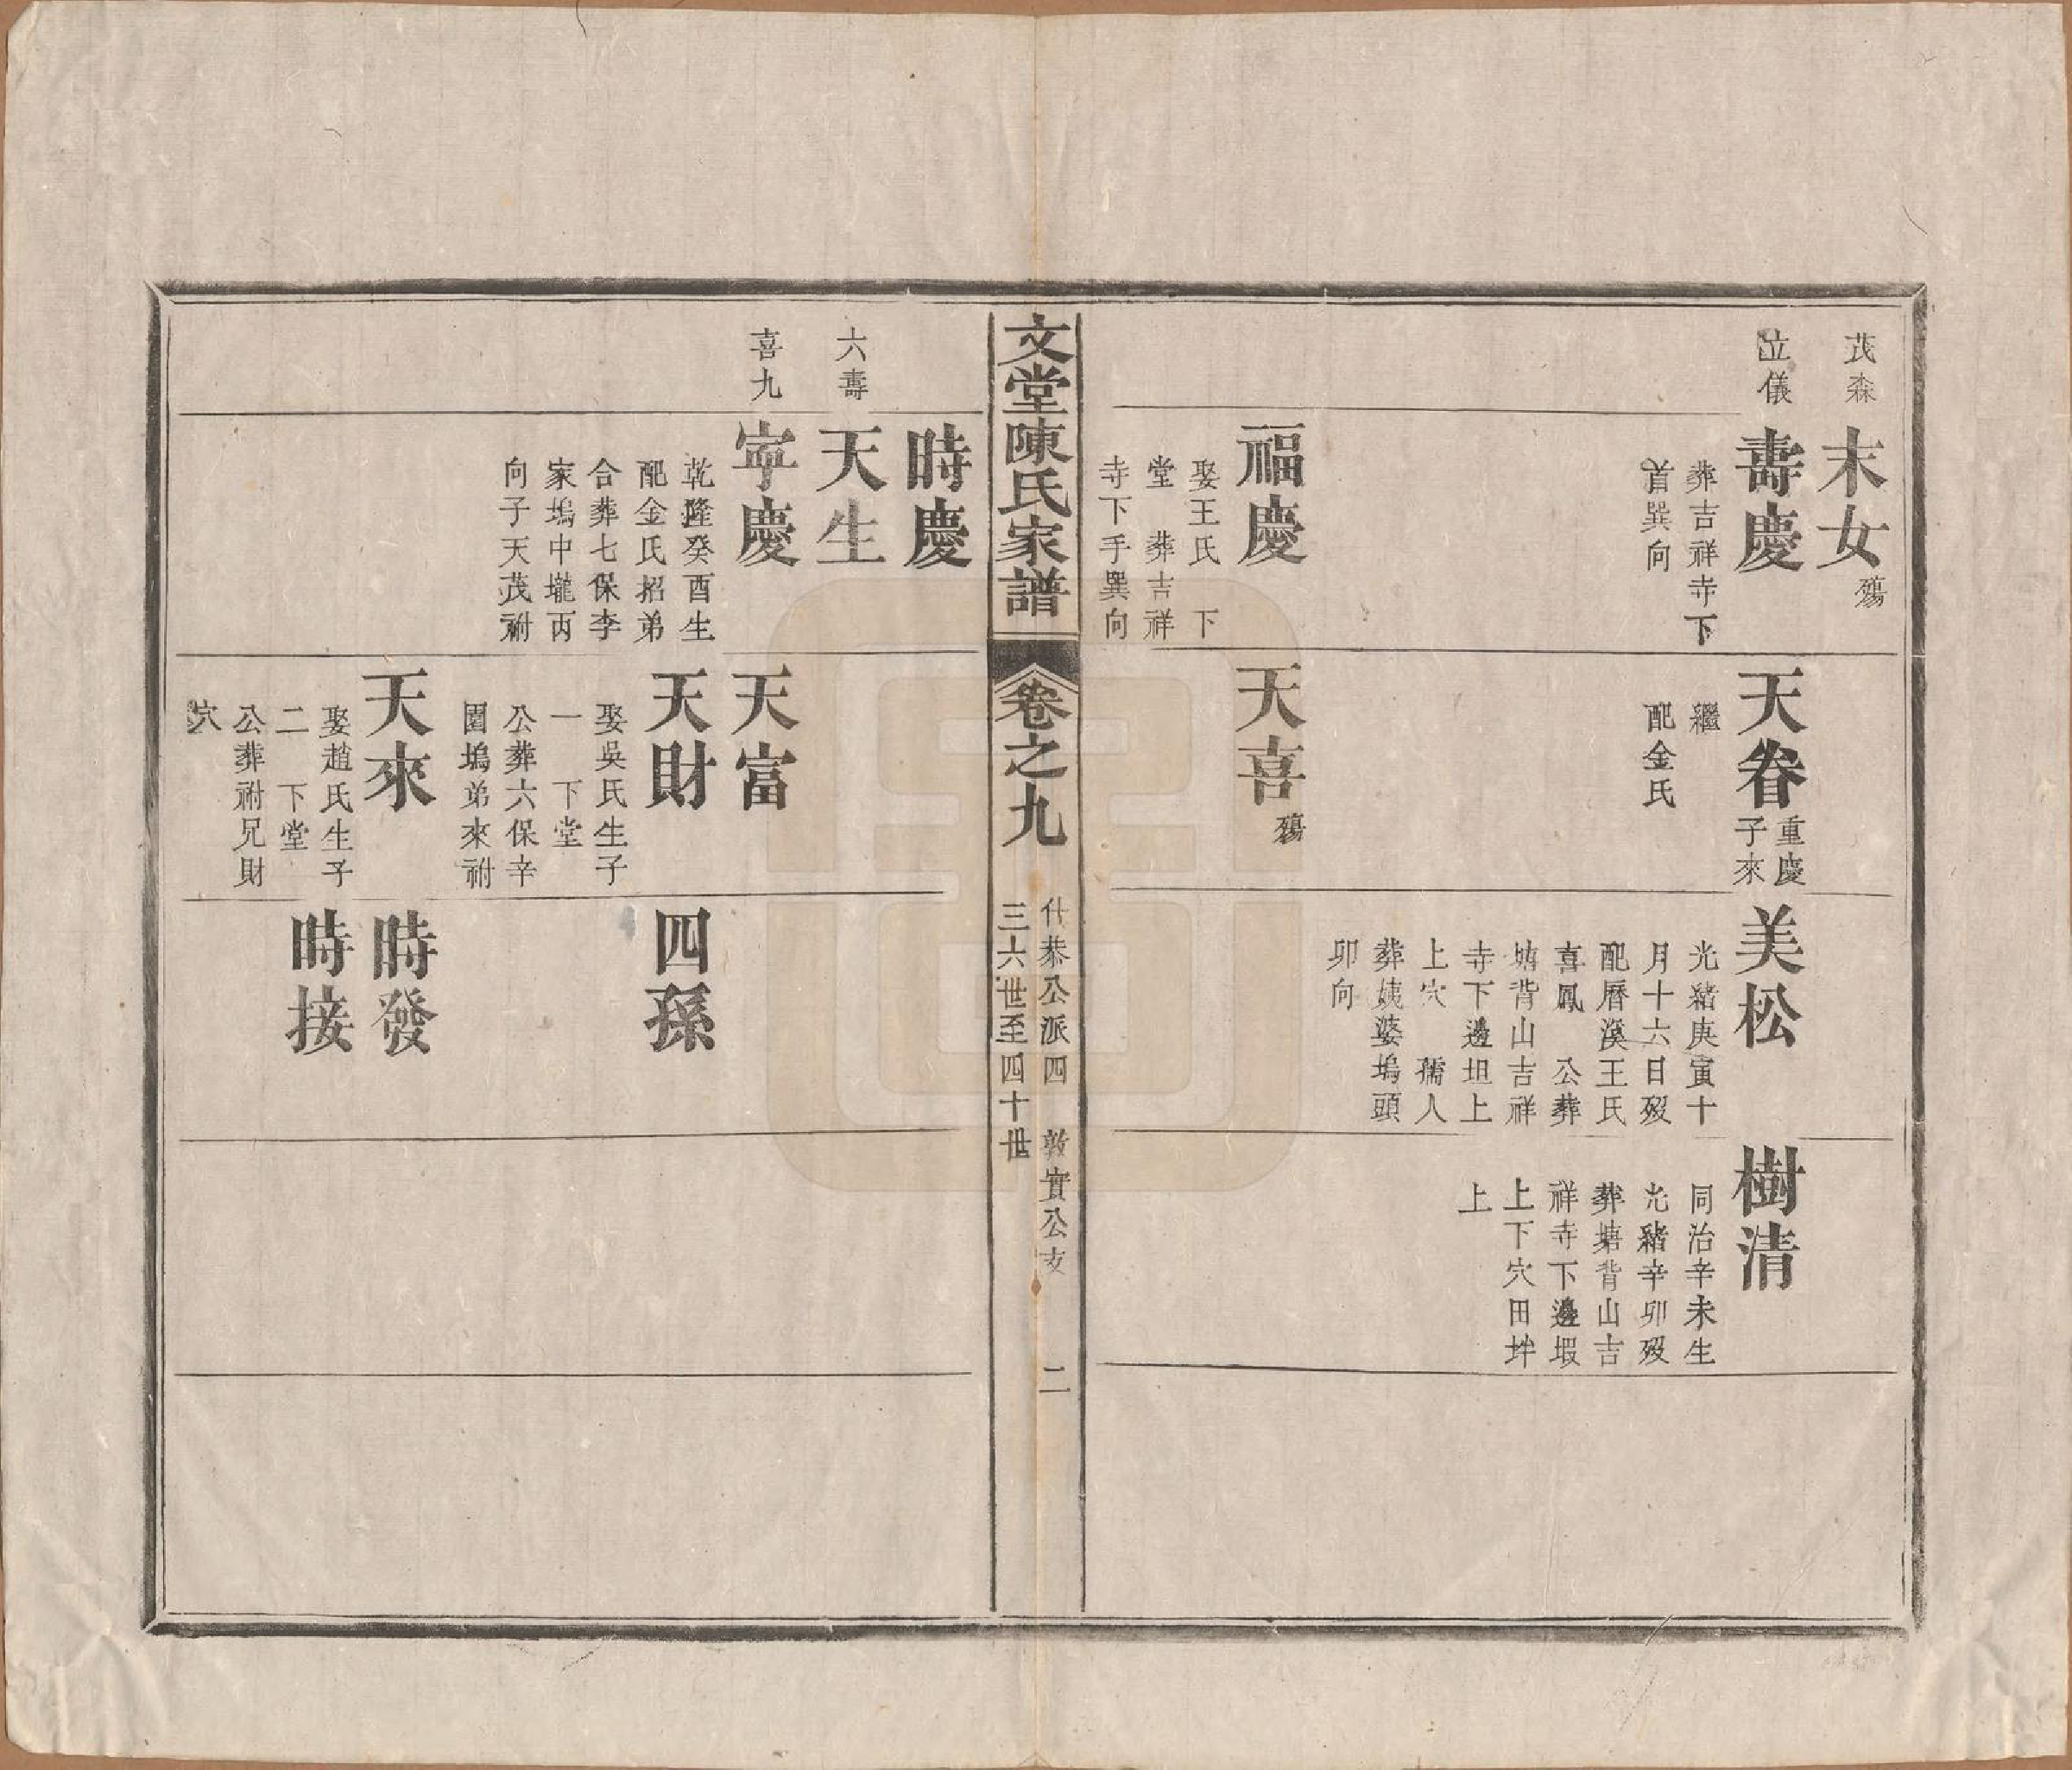 茂森
末女
殤
立儀
壽慶
葬吉祥寺下
首巽向
福慶
娶王氏 下
堂 葬吉祥
寺下手巽向
天眷
重慶
子來
繼
配金氏
天喜
殤
美松
光緒庚寅十
月十六日歿
配曆溪王氏
喜鳳 公葬
塘背山吉祥
寺下邊坦上
上穴 孺人
葬姨婆塢頭
卯向
樹清
同治辛未生
光緒辛卯歿
葬塘背山吉
祥寺下邊塅
上下穴田垟
上
文堂陳氏家譜
卷之九
什恭公派四 敦實公支 二
三六世至四十世
時慶
六壽
天生
喜九
寜慶
乾隆癸酉生
配金氏招弟
合葬七保李
家塢中壠丙
向子天茂祔
天富
天財
娶吳氏生子
一 下堂
公葬六保辛
園塢弟來祔
天來
娶趙氏生子
二 下堂
公葬祔兄財
穴
四孫
時發
時接